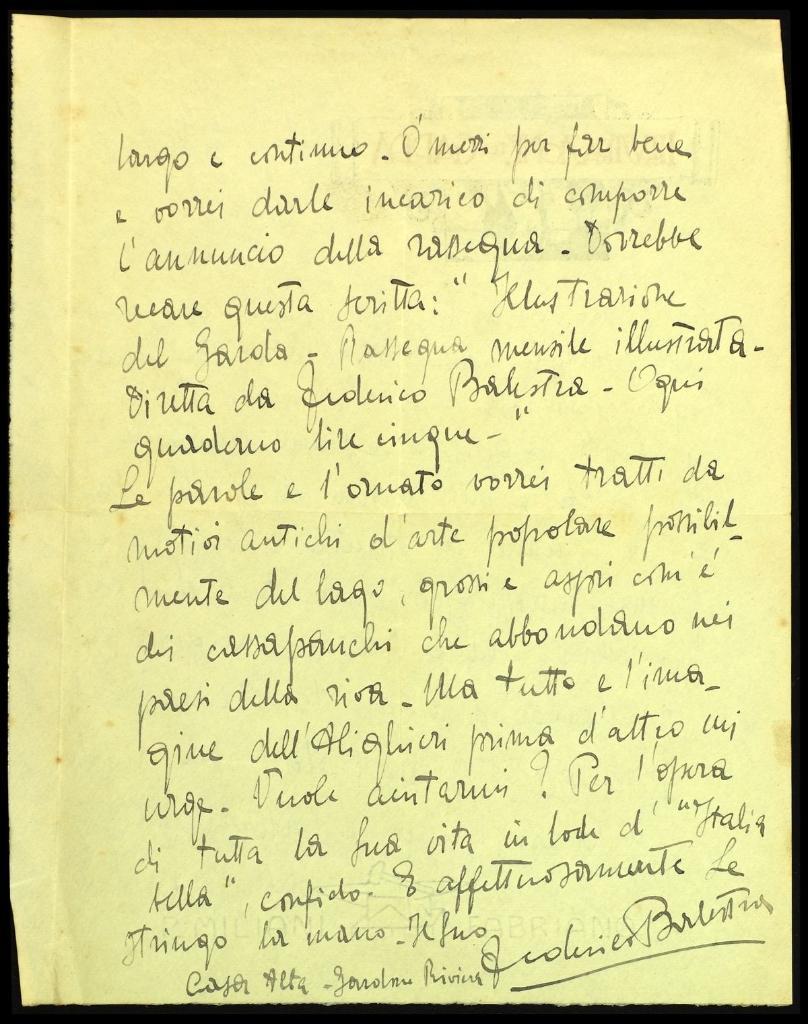 largo e continuo. Ó mezzi per far bene
e vorrei darle incarico di comporre
l'annuncio della rassegna. Dovrebbe
recare questa scritta: "Illustrazione
del Garda - Rassegna mensile illustrata -
Diretta da Federico Balestra - Ogni
quaderno lire cinque - "
Le parole e l'ornato vorrei tratti da
motivi antichi d'arte popolare possibil-
mente del lago, grossi e aspri com'é
dei cassapanchi che abbondano nei
paesi della riva - Ma tutto e l'ima-
gine dell'Alighieri prima d'altro mi
urge. Vuole aiutarmi? Per l'opera
di tutta la Sua vita in lode d' "Italia
bella", confido. E affettuosamente Le
stringo la mano. Il Suo
Federico Balestra
Casa Alta - Gardone Riviera
FABRIANO